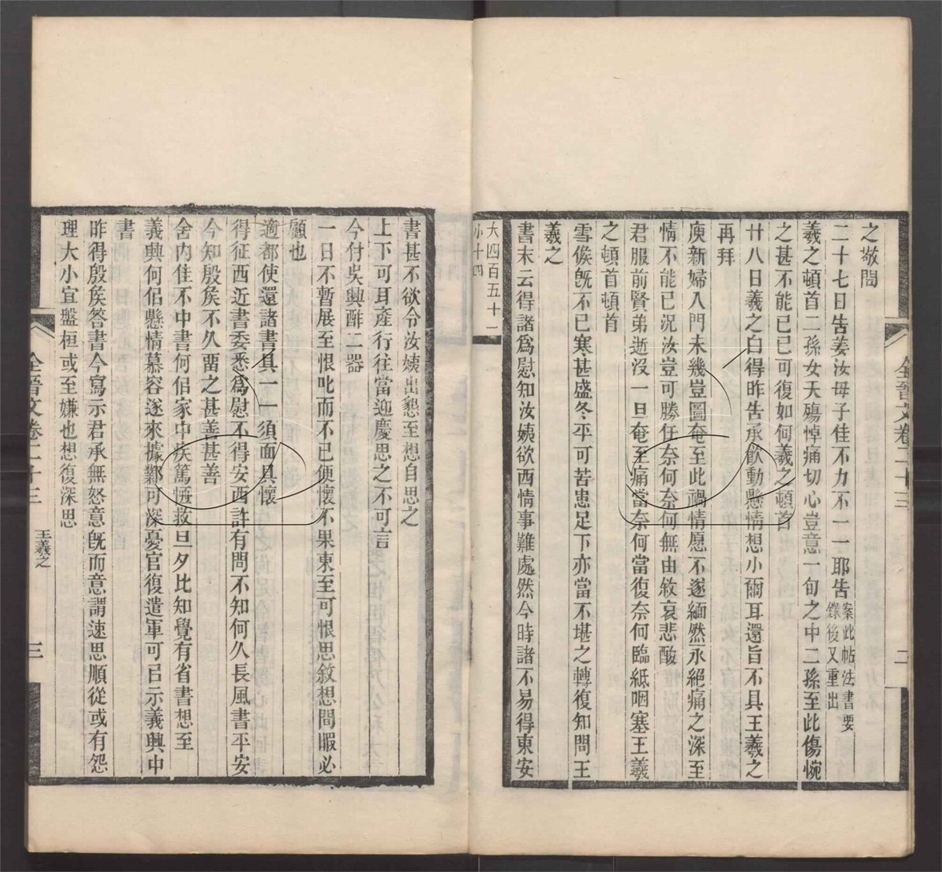 之敬問
二十七日告姜汝母子佳不力不一一耶告案此帖法書要錄後又重出
羲之頓首二孫女夭殤悼痛切心豈意一旬之中二孫至此傷惋
之甚不能已已可復如何羲之頓首
廿八日羲之白得昨告承飲動懸情想小爾耳還旨不具王羲之
再拜
庾新婦入門未幾豈圖奄至此禍情愿不遂緬然永絕痛之深至
情不能已況汝豈可勝任奈何奈何無由敘哀悲酸
君服前賢弟逝沒一旦奄至痛當奈何當復奈何臨紙咽塞王羲
之頓首頓首
雪候旣不已寒甚盛冬平可苦患足下亦當不堪之轉復知問王
羲之
書末云得諸爲慰知汝姨欲西情事難處然今時諸不易得東安
大四百五十一
小十四
全晉文卷二十三
二
書甚不欲令汝姨出懇至想自思之
上下可耳產行往當迎慶思之不可言
今付吳興酢二器
一日不暫展至恨叱而不已便懷不果東至可恨思敘想間暇必
顧也
適都使還諸書具一一須面具懷
得征西近書委悉爲慰不得安西許有問不知何久長風書平安
今知殷矦不久畱之甚善甚善
舍內佳不中書何佀家中疾篤恆救旦夕比知覺有省書想至
義興何佀懸情慕容遂來據鄴可深憂官復遣軍可㠯示義興中
書
昨得殷矦答書今寫示君承無怒意旣而意謂速思順從或有怨
理大小宜盤桓或至嫌也想復深思
全晉文卷二十三
王羲之
三